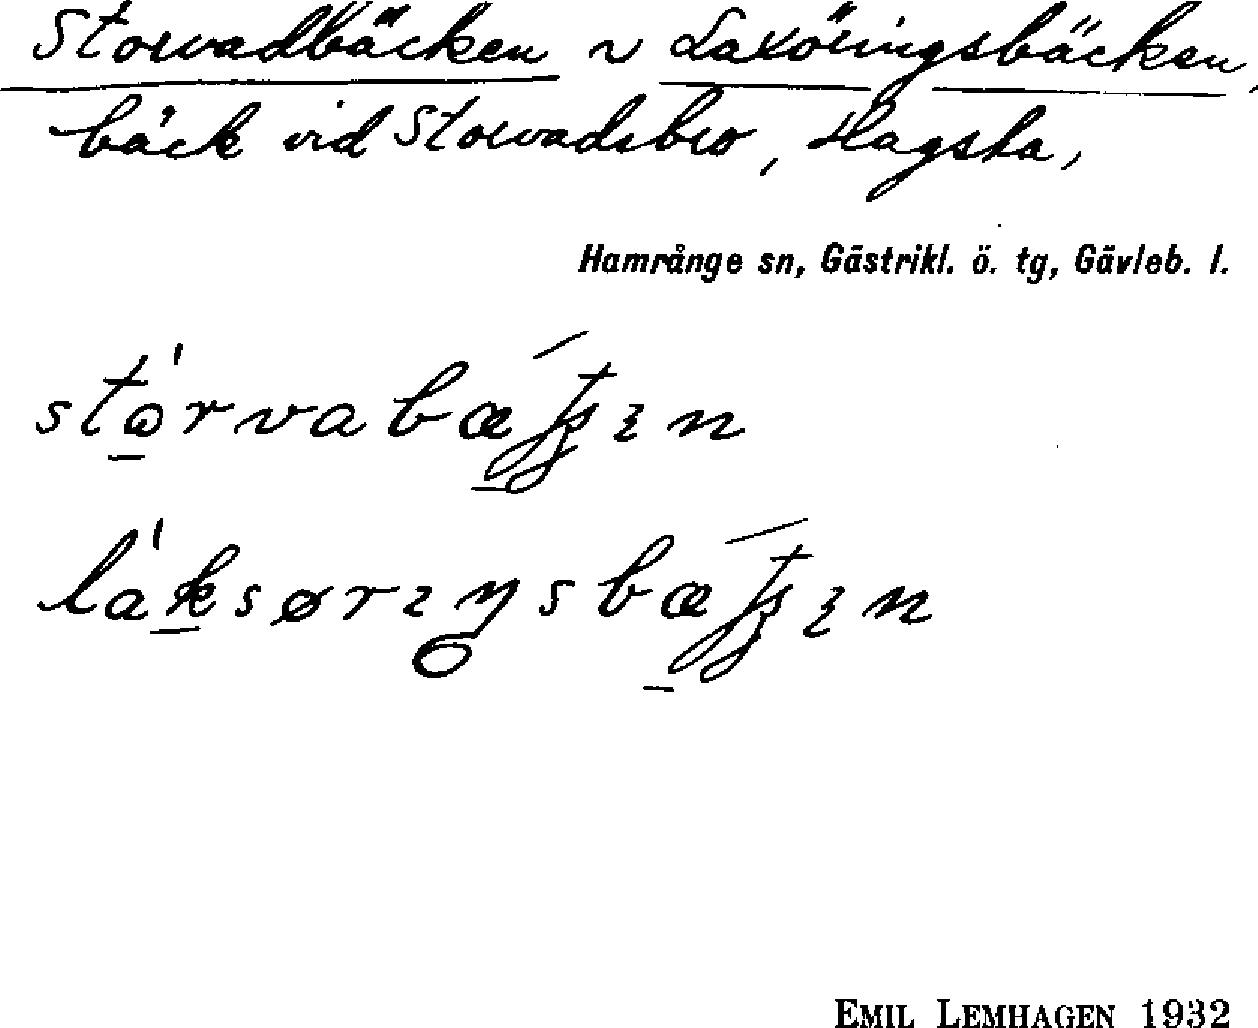 Storvadbäcken ~ Laxöringsbäcken,
bäck vid Storvadsbro, Hagsta,
Hamrånge sn, Gästrikl. ö. tg, Gävleb. l.
EMIL LEMHAGEN 1932